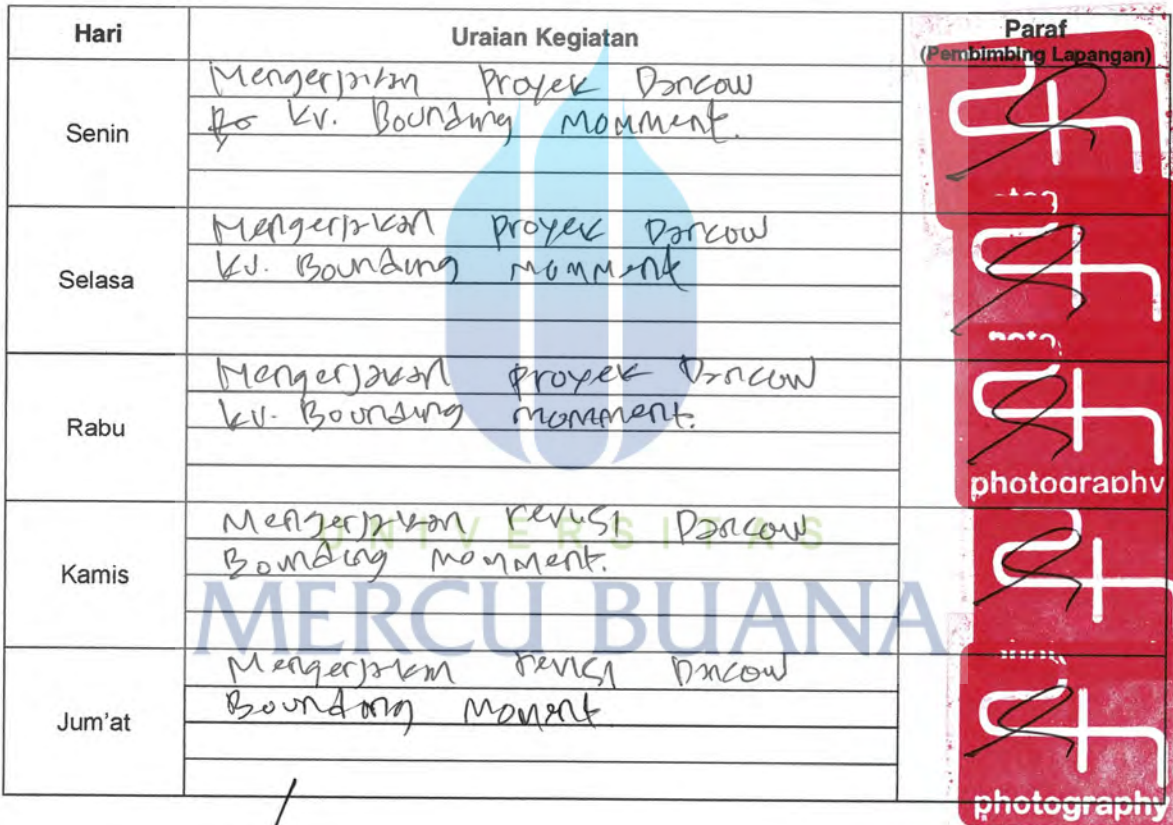 Hari Uraian Kegiatan Paraf
(Pembimbing Lapangan)
Senin
Mengerjakan Proyek Dancow
Kv. Bounding Momment.
Selasa
Mengerjakan Proyek Dancow
Kv. Bounding Momment
Rabu
Mengerjakan Proyek Dancow
Kv. Bounding Momment.
photography
Kamis
Mengerjakan revisi Dancow
Bounding Momment.
UNIVERSITAS
MERCU BUANA
Jum'at
Mengerjakan revisi Dancow
Bounding Moment
photography